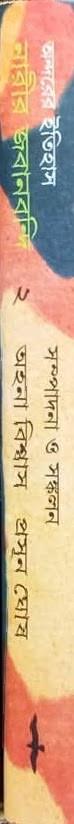 অন্দরের ইতিহাস
নারীর জবানবন্দি
২
সম্পাদনা ও সঙ্কলন
অহনা বিশ্বাস প্রসূন ঘোষ